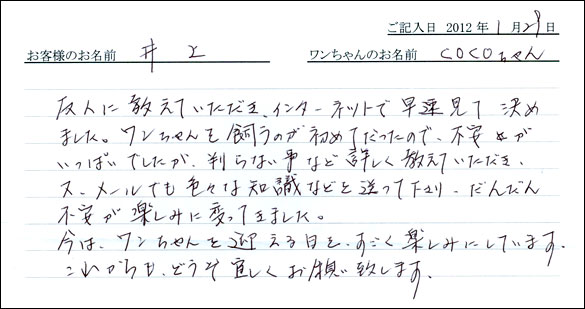 ご記入日 2012年1月29日
お客様のお名前 井上 ワンちゃんのお名前 COCOちゃん
友人に教えていただき、インターネットで早速見て決め
ました。ワンちゃんを飼うのが初めてだったので、不安が
いっぱいでしたが、判らない事など詳しく教えていただき、
又、メールでも色々な知識などを送って下さり、だんだん
不安が楽しみに変ってきました。
今は、ワンちゃんを迎える日を、すごく楽しみにしています。
これからも、どうぞ宜しくお願い致します。